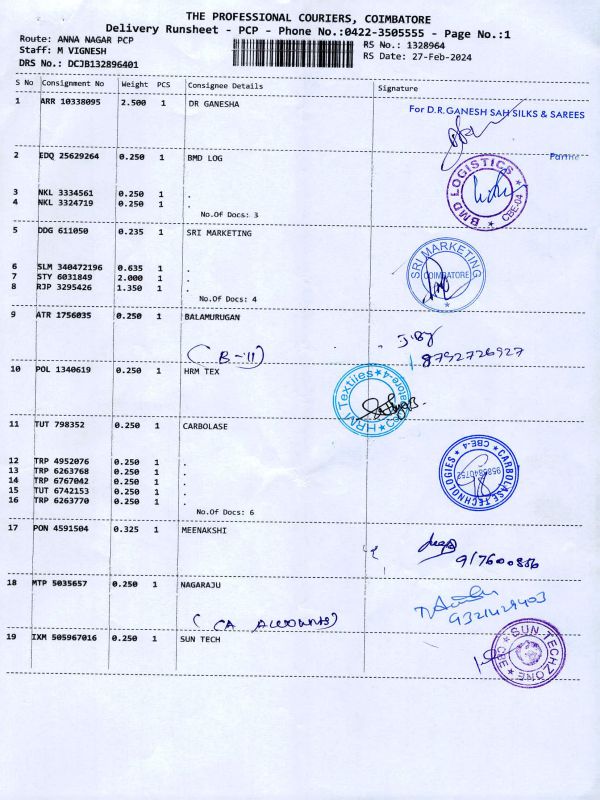 THE PROFESSIONAL COURIERS, COIMBATORE
Delivery Runsheet - PCP - Phone No.:0422-3505555 - Page No.:1
Route: ANNA NAGAR PCP
RS No.: 1328964
Staff: M VIGNESH
RS Date: 27-Feb-2024
DRS No.: DCJB132896401
S No Consignment No Weight PCS Consignee Details Signature
1 ARR 10338095 2.500 1 DR GANESHA
For D.R.GANESH SAH SILKS & SAREES
2 EDQ 25629264 0.250 1 BMD LOG
BMD LOGISTICS
CBE-04
3 NKL 3334561 0.250 1 .
4 NKL 3324719 0.250 1 .
No.Of Docs: 3
5 DDG 611050 0.235 1 SRI MARKETING
SRI MARKETING
COIMBATORE
6 SLM 340472196 0.635 1 .
7 STY 6031849 2.000 1 .
8 RJP 3295426 1.350 1 .
No.Of Docs: 4
9 ATR 1756035 0.250 1 BALAMURUGAN
(B-11)
8792726927
10 POL 1340619 0.250 1 HRM TEX
HRM Textiles
11 TUT 798352 0.250 1 CARBOLASE
CARBOLASE TECHNOLOGIES
CBE-4
12 TRP 4952076 0.250 1 .
13 TRP 6263768 0.250 1 .
14 TRP 6767042 0.250 1 .
15 TUT 6742153 0.250 1 .
16 TRP 6263770 0.250 1 .
No.Of Docs: 6
17 PON 4591504 0.325 1 MEENAKSHI
18 MTP 5035657 0.250 1 NAGARAJU
9321429403
(CA Accounts)
19 IXM 505967016 0.250 1 SUN TECH
SUN TECHZONE
CBE